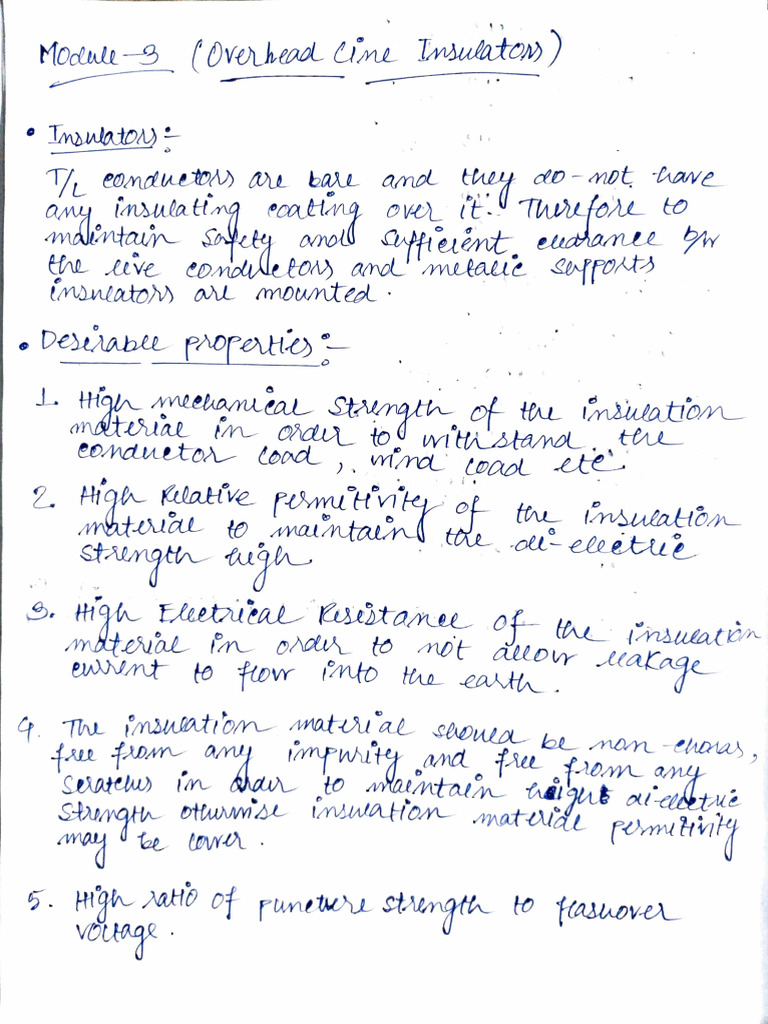 Module-3 (Overhead Line Insulators)
• Insulators:-
T/L conductors are bare and they do-not have
any insulating coating over it. Therefore to
maintain safety and sufficient clearance b/w
the live conductors and metalic supports
insulators are mounted.
• Desirable properties:-
1. High mechanical strength of the insulation
material in order to withstand the
conductor load, wind load etc.
2. High Relative permitivity of the insulation
material to maintain the di-electric
strength high.
3. High Electrical Resistance of the insulation
material in order to not allow leakage
current to flow into the earth.
4. The insulation material should be non-,
free from any impurity and free from any
scratches in order to maintain di-electric
strength otherwise insulation material permitivity
may be lower.
5. High ratio of puncture strength to flashover
voltage.